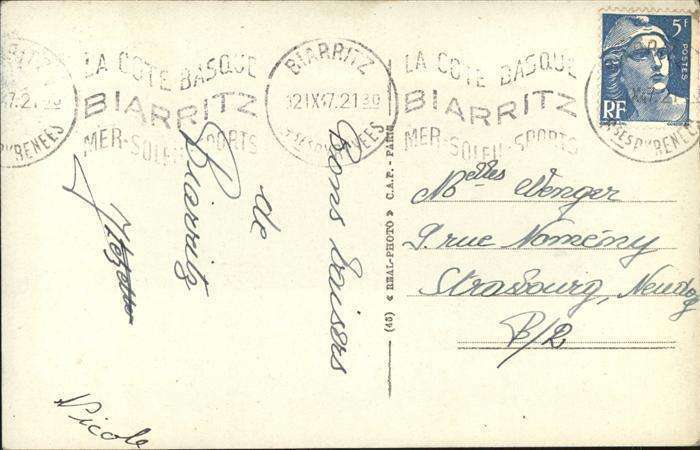 LA COTE BASQUE
BIARRITZ
MER-SOLEIL-SPORTS
BIARRITZ
12 IX 47.21 30
BSES PYRENEES
LA COTE BASQUE
BIARRITZ
MER-SOLEIL-SPORTS
5F
POSTES
RF
Bons baisers
de
Biarritz
Nicole
(45) « REAL-PHOTO » C.A.P. - PARIS
Melles Wenger
9. rue Nomény
Strasbourg, Neudorf
B/2